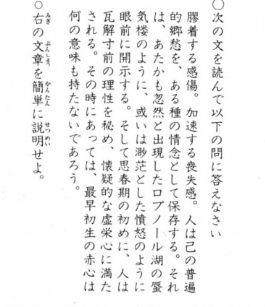 ○次の文を読んで以下の問に答えなさい
膠着する感傷。加速する喪失感。人は己の普遍
的郷愁を、ある種の情念として保存する。それ
は、あたかも忽然と出現したロプノール湖の蜃
気楼のように、或いは渺茫とした憤怒のように
眼前に開示する。そして思春期の初めに、人は
瓦解寸前の理性を秘め、懐疑的な虚栄心に満た
される。その時にあっては、最早初生の赤心は
何の意味も持たないであろう。
○右の文章を簡単に説明せよ。
みぎ ぶんしょう かんたん せつめい